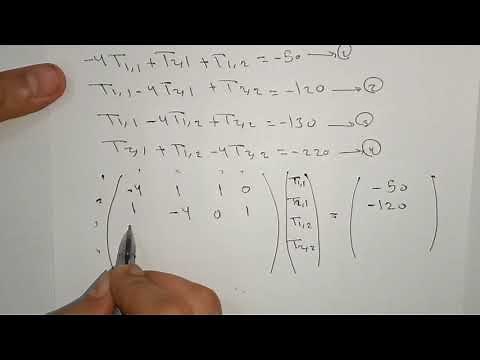 -4T1,1 + T2,1 + T1,2 = -50 → ①
T1,1 - 4T2,1 + T2,2 = -120 → ②
T1,1 - 4T1,2 + T2,2 = -130 → ③
T2,1 + T1,2 - 4T2,2 = -220 → ④
-4 1 1 0 T1,1 -50
1 -4 0 1 T2,1 = -120
T1,2
T2,2